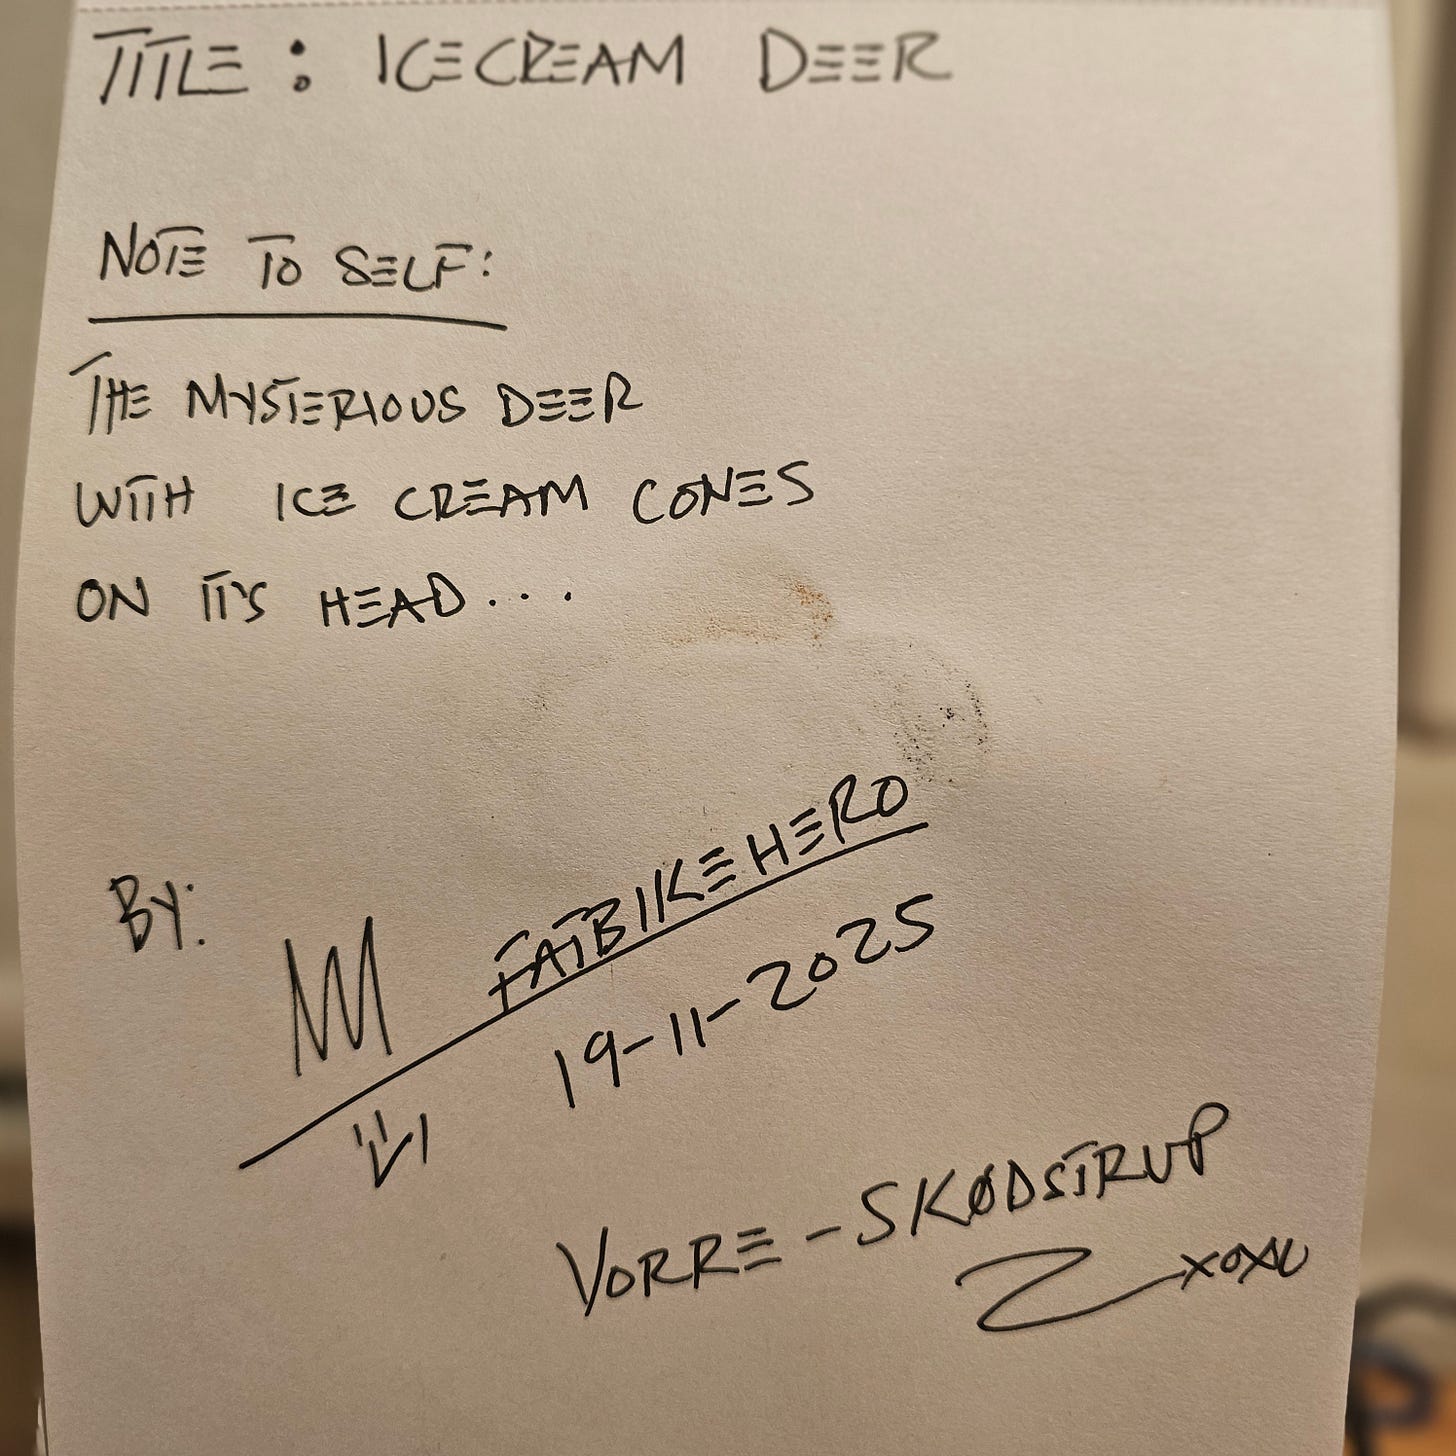 TITLE: ICECREAM DEER
NOTE TO SELF:
THE MYSTERIOUS DEER
WITH ICE CREAM CONES
ON IT'S HEAD...
BY:
FATBIKEHERO
19-11-2025
VORRE-SKØDSTRUP
XOXO